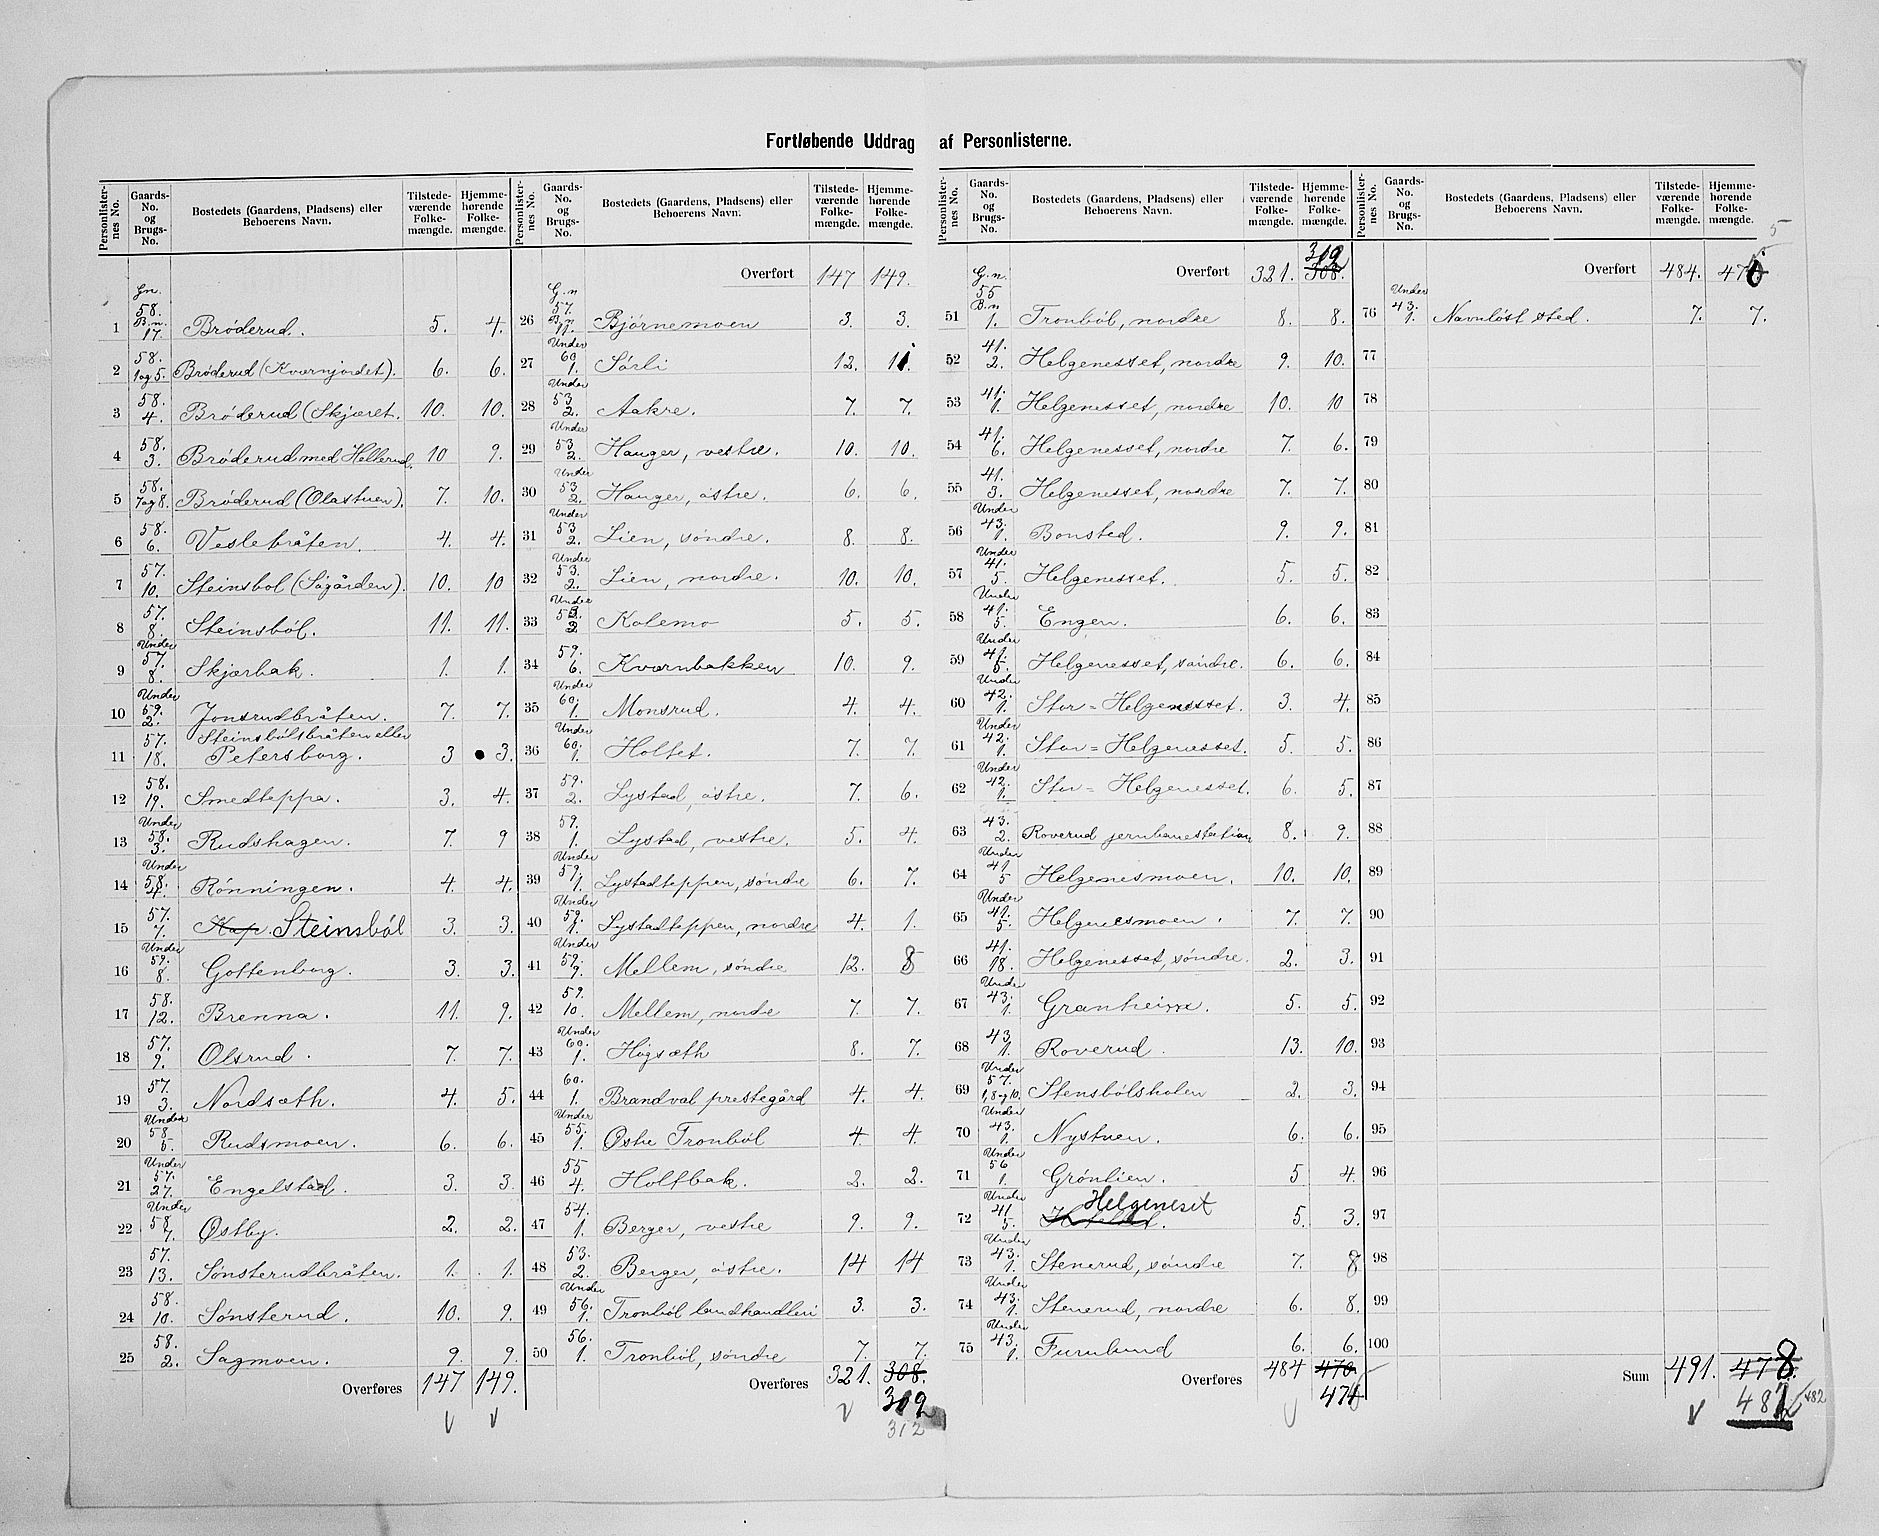 Fortløbende Uddrag af Personlisterne.
Personlister-nes No. | Gaards-No. og Brugs-No. | Bostedets (Gaardens, Pladsens) eller Beboerens Navn. | Tilstede-værende Folke-mængde. | Hjemme-hørende Folke-mængde.
1 | Gn. 58. B.n. 17. | Brøderud. | 5. | 4.
2 | 58. 1og5. | Brøderud (Kværnjordet). | 6. | 6.
3 | 58. 4. | Brøderud (Skjæret. | 10. | 10.
4 | 58. 3. | Brøderud med Hellerud. | 10 | 9.
5 | 58. 7og8. | Brøderud (Olastuen). | 7. | 10.
6 | 58. 6. | Veslebråten. | 4. | 4.
7 | 57. 10. | Steinsbol (Sigården). | 10. | 10
8 | 57. 8. | Steinsból. | 11. | 11.
9 | Under 57. 8. | Skjærbak. | 1. | 1.
10 | Under 59. 2. | Jonsrudbråten. | 7. | 7.
11 | 57. 18. | Steinsbólsbråten eller Petersborg. | 3 | 3.
12 | 58. 19. | Smedteppa. | 3. | 4.
13 | Under 58. 3. | Rudshagen. | 7. | 9
14 | Under 58. 4. | Rønningen. | 4. | 4.
15 | 57. 7. | Steinsból | 3. | 3.
16 | Under 59. 8. | Gottenborg. | 3. | 3.
17 | 58. 12. | Brenna. | 11. | 9.
18 | 57. 9. | Olsrud. | 7. | 7.
19 | 57. 3. | Nordsæth. | 4. | 5.
20 | Under 58 5. | Rudsmoen. | 6. | 6.
21 | Under 57. 27. | Engelstad. | 3. | 3.
22 | Under 58 7. | Østby. | 2. | 2.
23 | 57. 13. | Sønsterudbråten. | 1. | 1.
24 | 58. 10. | Sønsterud. | 10. | 9.
25 | 58. 2. | Sagmoen. | 9. | 9.
Overføres | 147 | 149.
Personlister-nes No. | Gaards-No. og Brugs-No. | Bostedets (Gaardens, Pladsens) eller Beboerens Navn. | Tilstede-værende Folke-mængde. | Hjemme-hørende Folke-mængde.
Overført | 147 | 149.
26 | G.n 57. B.n 11. | Bjørnemoen | 3. | 3.
27 | Under 60 1. | Sørli | 12. | 11.
28 | Under 53 2. | Aakre. | 7. | 7.
29 | Under 53 2. | Hauger, vestre. | 10. | 10.
30 | Under 53 2. | Hauger, østre. | 6. | 6.
31 | Under 53 2. | Lien, søndre. | 8. | 8.
32 | Under 53. 2. | Lien, nordre. | 10. | 10.
33 | Under 53. 2 | Kolemo | 5. | 5.
34 | 59. 6. | Kværnbakken | 10. | 9.
35 | Under 60. 1. | Monsrud. | 4. | 4.
36 | Under 60. 1. | Holtet. | 7. | 7.
37 | 59. 2. | Lystad, østre. | 7. | 6.
38 | 59. 1. | Lystad, vestre. | 5. | 4.
39 | Under 59. 1. | Lystadteppen, søndre | 6. | 7.
40 | Under 59. 1. | Lystadteppen, nordre | 4. | 1.
41 | Under 59. 9. | Mellem, søndre | 12. | 8
42 | 59. 10. | Mellem, nordre | 7. | 7.
43 | Under 60. 1. | Høgsæth | 8. | 7.
44 | 60. 1. | Brandval prestegård | 4. | 4.
45 | Under 55. 1. | Østre Tronból | 4 | 4.
46 | 55 4. | Holtbak. | 2. | 2.
47 | 54. 1. | Berger, vestre | 9. | 9.
48 | 53. 2. | Berger, østre. | 14 | 14
49 | Under 56. 1. | Tronból landhandleri | 3. | 3.
50 | 56. 1. | Tronból, søndre | 7. | 7.
Overføres | 321. | 308.
312
312
Personlister-nes No. | Gaards-No. og Brugs-No. | Bostedets (Gaardens, Pladsens) eller Beboerens Navn. | Tilstede-værende Folke-mængde. | Hjemme-hørende Folke-mængde.
Overført | 321. | 312 308.
51 | G.n. 55 B.n 1. | Tronból, nordre | 8. | 8.
52 | 41. 2. | Helgenesset, nordre | 9. | 10.
53 | 41. 1. | Helgenesset, nordre | 10. | 10
54 | 41. 6. | Helgenesset, nordre | 7. | 6.
55 | 41. 3. | Helgenesset, nordre | 7. | 7.
56 | Under 43. 1. | Bonsted. | 9. | 9.
57 | Under 41. 5. | Helgenesset. | 5. | 5.
58 | Under 41. 5. | Engen. | 6. | 6.
59 | Under 41. 5. | Helgenesset, søndre. | 6. | 6.
60 | Under 42. 1. | Stor=Helgenesset. | 3. | 4.
61 | Under 42. 1. | Stor=Helgenesset. | 5. | 5.
62 | Under 42. 1. | Stor=Helgenesset. | 6. | 5.
63 | 43. 2. | Roverud jernbanestation | 8. | 9.
64 | Under 41 5 | Helgenesmoen. | 10. | 10.
65 | Under 41. 5. | Helgenesmoen. | 7. | 7.
66 | 41. 18. | Helgenesset, søndre. | 2. | 3.
67 | Under 43. 1. | Granheim. | 5. | 5.
68 | 43 1. | Roverud. | 13. | 10.
69 | Under 57. 1,8og10. | Stensbólsholen | 2. | 3.
70 | Under 43. 1. | Nystuen. | 6. | 6.
71 | Under 56 1. | Grønlien. | 5 | 4.
72 | Under 41 5. | Helgeneset | 5. | 3.
73 | Under 43. 1. | Stenerud, søndre | 7. | 8
74 | Under 43. 1. | Stenerud, nordre | 6. | 8.
75 | Under 43. 1. | Furulund | 6. | 6.
Overføres | 484 | 470.
474
Personlister-nes No. | Gaards-No. og Brugs-No. | Bostedets (Gaardens, Pladsens) eller Beboerens Navn. | Tilstede-værende Folke-mængde. | Hjemme-hørende Folke-mængde.
5
Overført | 484. | 475
76 | Under 43. 1. | Navnløst sted. | 7. | 7.
77
78
79
80
81
82
83
84
85
86
87
88
89
90
91
92
93
94
95
96
97
98
99
100
Sum | 491. | 478.
482 482